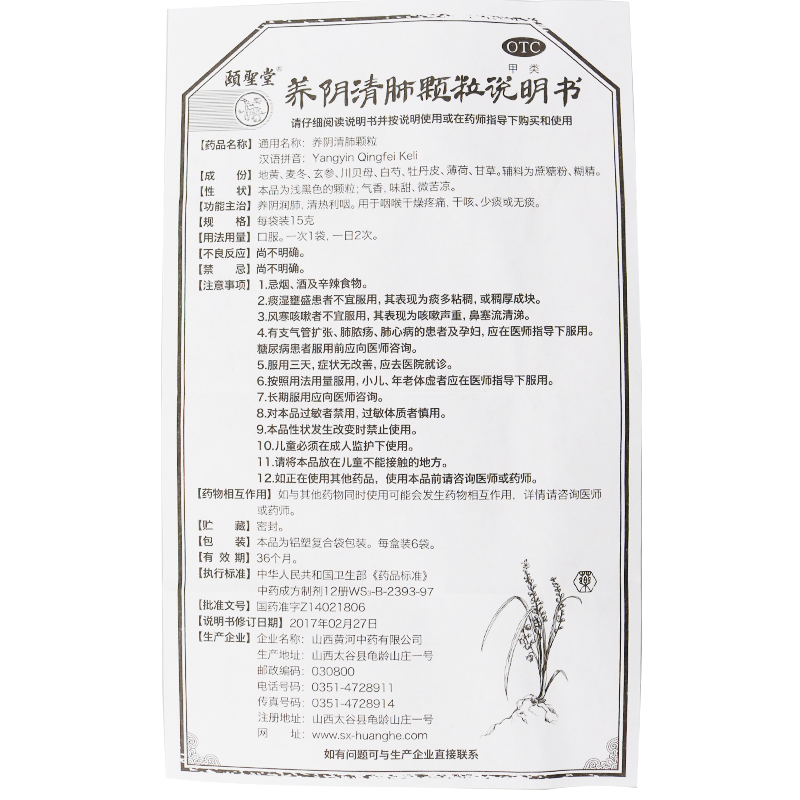 OTC
甲类
颐圣堂®
养阴清肺颗粒说明书
请仔细阅读说明书并按说明使用或在药师指导下购买和使用
【药品名称】通用名称：养阴清肺颗粒
汉语拼音：Yangyin Qingfei Keli
【成 份】地黄、麦冬、玄参、川贝母、白芍、牡丹皮、薄荷、甘草。辅料为蔗糖粉、糊精。
【性 状】本品为浅黑色的颗粒；气香，味甜、微苦凉。
【功能主治】养阴润肺，清热利咽。用于咽喉干燥疼痛，干咳、少痰或无痰。
【规 格】每袋装15克
【用法用量】口服。一次1袋，一日2次。
【不良反应】尚不明确。
【禁 忌】尚不明确。
【注意事项】1.忌烟、酒及辛辣食物。
2.痰湿壅盛患者不宜服用，其表现为痰多粘稠，或稠厚成块。
3.风寒咳嗽者不宜服用，其表现为咳嗽声重，鼻塞流清涕。
4.有支气管扩张、肺脓疡、肺心病的患者及孕妇，应在医师指导下服用。
糖尿病患者服用前应向医师咨询。
5.服用三天，症状无改善，应去医院就诊。
6.按照用法用量服用，小儿、年老体虚者应在医师指导下服用。
7.长期服用应向医师咨询。
8.对本品过敏者禁用，过敏体质者慎用。
9.本品性状发生改变时禁止使用。
10.儿童必须在成人监护下使用。
11.请将本品放在儿童不能接触的地方。
12.如正在使用其他药品，使用本品前请咨询医师或药师。
【药物相互作用】如与其他药物同时使用可能会发生药物相互作用，详情请咨询医师
或药师。
【贮 藏】密封。
【包 装】本品为铝塑复合袋包装。每盒装6袋。
【有 效 期】36个月。
【执行标准】中华人民共和国卫生部《药品标准》
中药成方制剂12册WS₃-B-2393-97
【批准文号】国药准字Z14021806
【说明书修订日期】2017年02月27日
【生产企业】企业名称：山西黄河中药有限公司
生产地址：山西太谷县龟龄山庄一号
邮政编码：030800
电话号码：0351-4728911
传真号码：0351-4728914
注册地址：山西太谷县龟龄山庄一号
网 址：www.sx-huanghe.com
如有问题可与生产企业直接联系